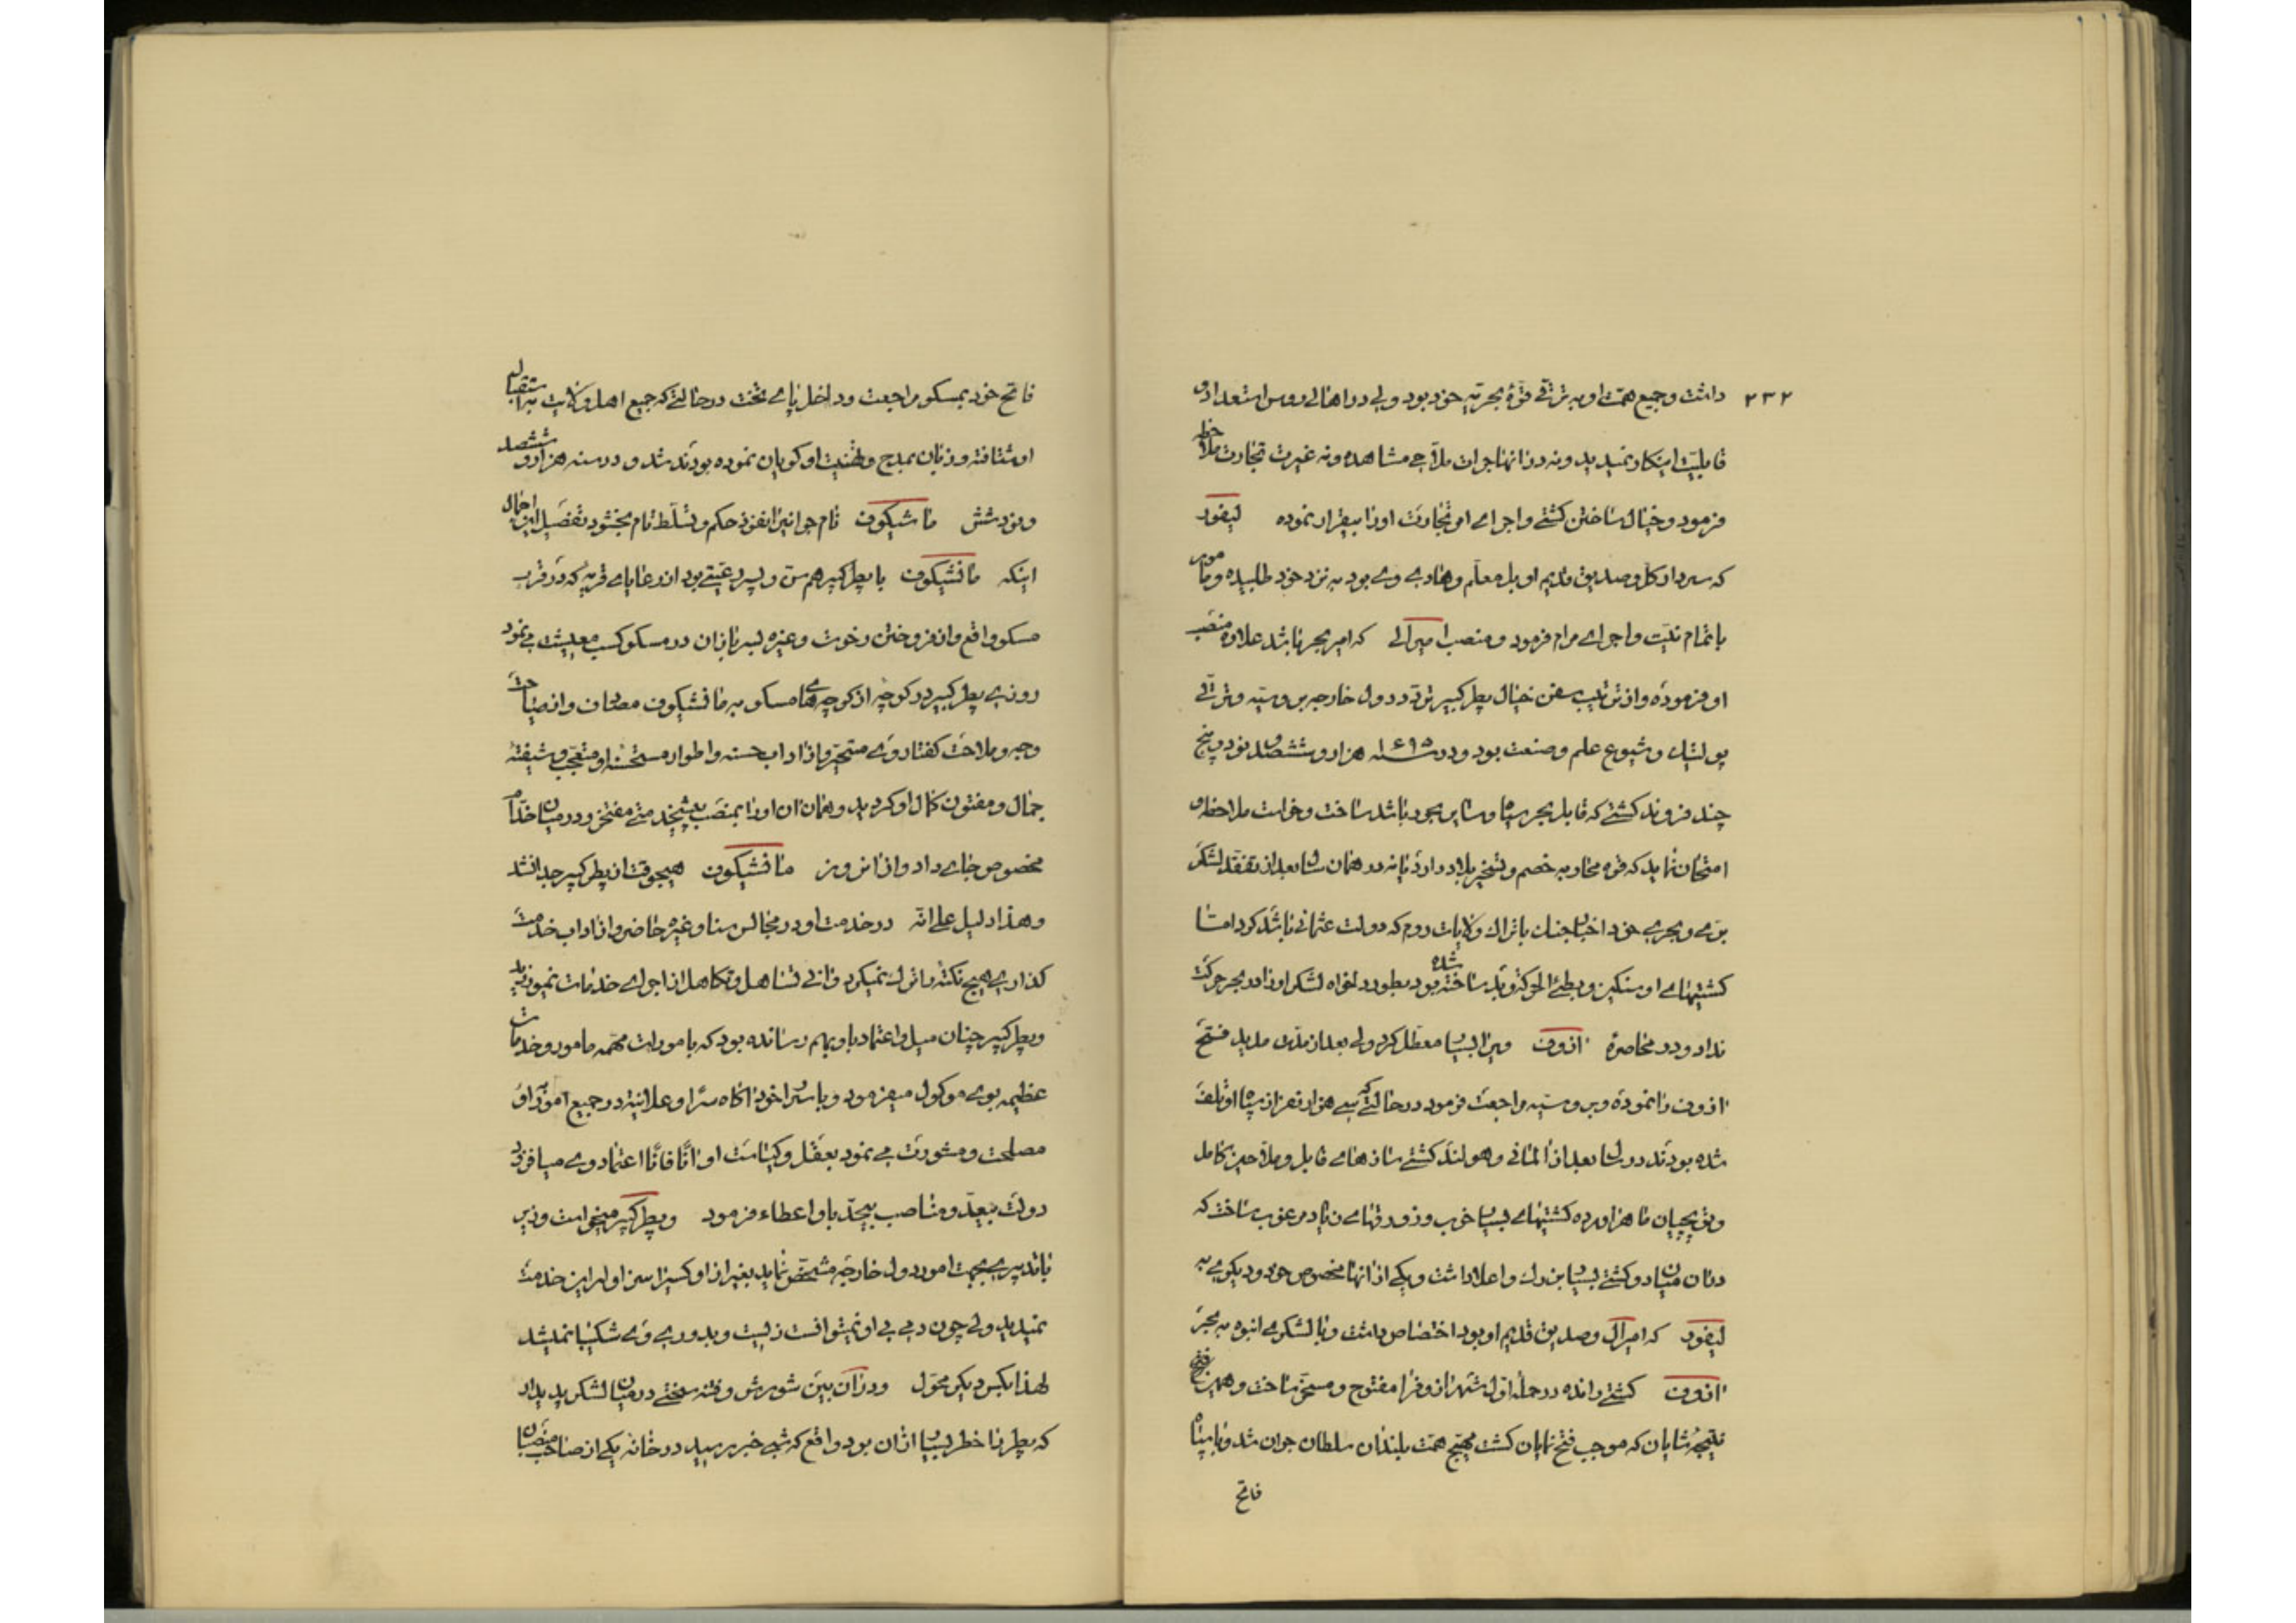 ۲۳۲
داشت و جمیع همت او به ترقی قوهٔ بحریه خود بود ولی در اهالی روس استعداد و
قابلیت اینکار نمیدید و نه در انها جرات ملاحی مشاهده و نه غیرت تجارت ملاحظه
فرمود و خیال ساختن کشتی و اجرای امر تجارت او را بیقرار نموده لیفود
که سردار کل و صدیق قدیم او بل معلم و هادی وی بود به نزد خود طلبیده و مامور
باتمام نیت و اجرای مرام فرمود و منصب امیرالی که امیر بحر باشد علاوه منصب
او فرموده و از ترتیب سفن خیال پطر کبیر تردد دول خارجه بروسیه و ترقی
پولتیک و شیوع علم و صنعت بود و در سنه ۱۶۹۵ هزار و ششصد و نود و پنج
چند فروند کشتی که قابل بحر سیاه و سایر بحور باشد ساخت و خواست ملاحظه و
امتحان نماید که قوه محاربه خصم و تسخیر بلاد دارد یا نه در همان سال بعد از تفقد لشکر
بری و بحری خود اختیار جنگ با تراک ولایات روم که دولت عثمانی باشد کرد اما
کشتیهای او سنگین و بطیٔ الحرکة و بد ساخته شده بود بطور دلخواه لشکر او را در بحر حرکت
نداد و در محاصرهٔ ازوف ویرا بسیار معطل کرد ولی بعد از مدتی مدید فتح
ازوف را نموده و بروسیه مراجعت فرمود در حالتی که سی هزار نفر از سپاه او تلف
شده بودند در سال بعد از المانی و هولند کشتی سازهای قابل و ملاحین کامل
و توپچیان ماهر اورده کشتیهای بسیار خوب و زورقهای زیاد مرغوب ساخت که
در ان میان دو کشتی بسیار بزرگ و اعلا داشت و یکی از انها مخصوص خود و دیگری به
لیفود که امیرال و صدیق قدیم او بود اختصاص داشت و با لشکری انبوه به بحر
ازوف کشتی رانده در حمله اول شهر ازوف را مفتوح و مسخر ساخت و همین فتح
نتیجهٔ شایان که موجب فتح نمایان کشت مهیج همت بلند ان سلطان جوان شد و با سپاه
فاتح
فاتح خود بمسکو مراجعت و داخل پای تخت در حالتی که جمیع اهل ولایت به استقبال
او شتافته و زبان بمدح و تهنیت او کویان نموده بودند شد و در سنه هزار و ششصد
و نود شش مانشیکوف نام جوانیرا نفوذ حکم و تسلط تام بخشود تفصیل این اجمال
اینکه مانشیکوف با پطر کبیر هم سن و پسر رعیتی بود از رعایای قریهٔ که در قرب
مسکو واقع و از فروختن رخوت و غیره بسربازان در مسکو کسب معیشت می نمود
روزی پطر کبیر در کوچهٔ از کوچه های مسکو به مانشیکوف مصادف و از صباحت
وجه و ملاحت کفتار وی متحیر و از اداب حسنه و اطوار مستحسنه او متعجب و شیفتهٔ
جمال و مفتون کمال او کردید و همان ان او را بمنصب پیشخدمتی مفتخر و در میان خدام
مخصوص جای داد و از انروز مانشیکوف هیچوقت از پطر کبیر جدا نشد
و هذا دلیل علی انه در خدمت او در مجالس بنا و غیره حاضر و از اداب خدمت
کذاری هیچ نکتهٔ را ترک نمیکرد و انی تساهل و تکاهل از اجرای خدمات نمیورزید
و پطر کبیر چنان میل و اعتماد باو بهم رسانده بود که بامورات مهمه مامور و خدمات
عظیمه بوی موکول میفرمود و با سرا خود اکاه سرا و علانیة در جمیع امور از او
مصلحت و مشورت می نمود بعقل و کیاست او انا فانا اعتماد وی میافزود
دولت بیعد و مناصب بیحد باو اعطاء فرمود و پطر کبیر میخواست وزیر
با تدبیری بجهت امور دول خارجه مشخص نماید بغیر از او کسیرا سزاوار این خدمت
نمیدید ولی چون دمی بی او نمیتوانست زیست و بدوری وی شکیبا نمیشد
لهذا بکس دیکر محول و در ان بین شورش و فتنه سختی در میان لشکر پدیدار
که پطر را خطر بسیار از ان بود واقع که شبی خبر رسید در خانه یکی از صاحب منصبان